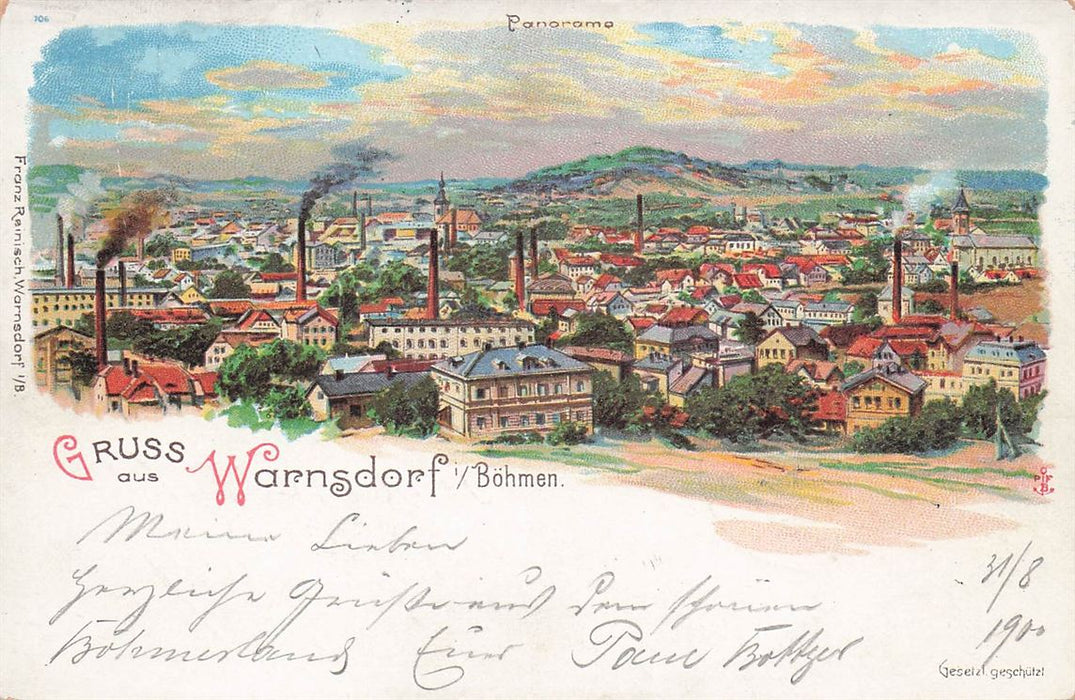 106
Panorama
Franz Reinisch, Warnsdorf i/B.
GRUSS
aus Warnsdorf i/Böhmen.
Meine Lieben
Herzliche Grüße aus dem schönen
Böhmerland Euer Paul Böttger
31/8
1900
Gesetzl. geschützt